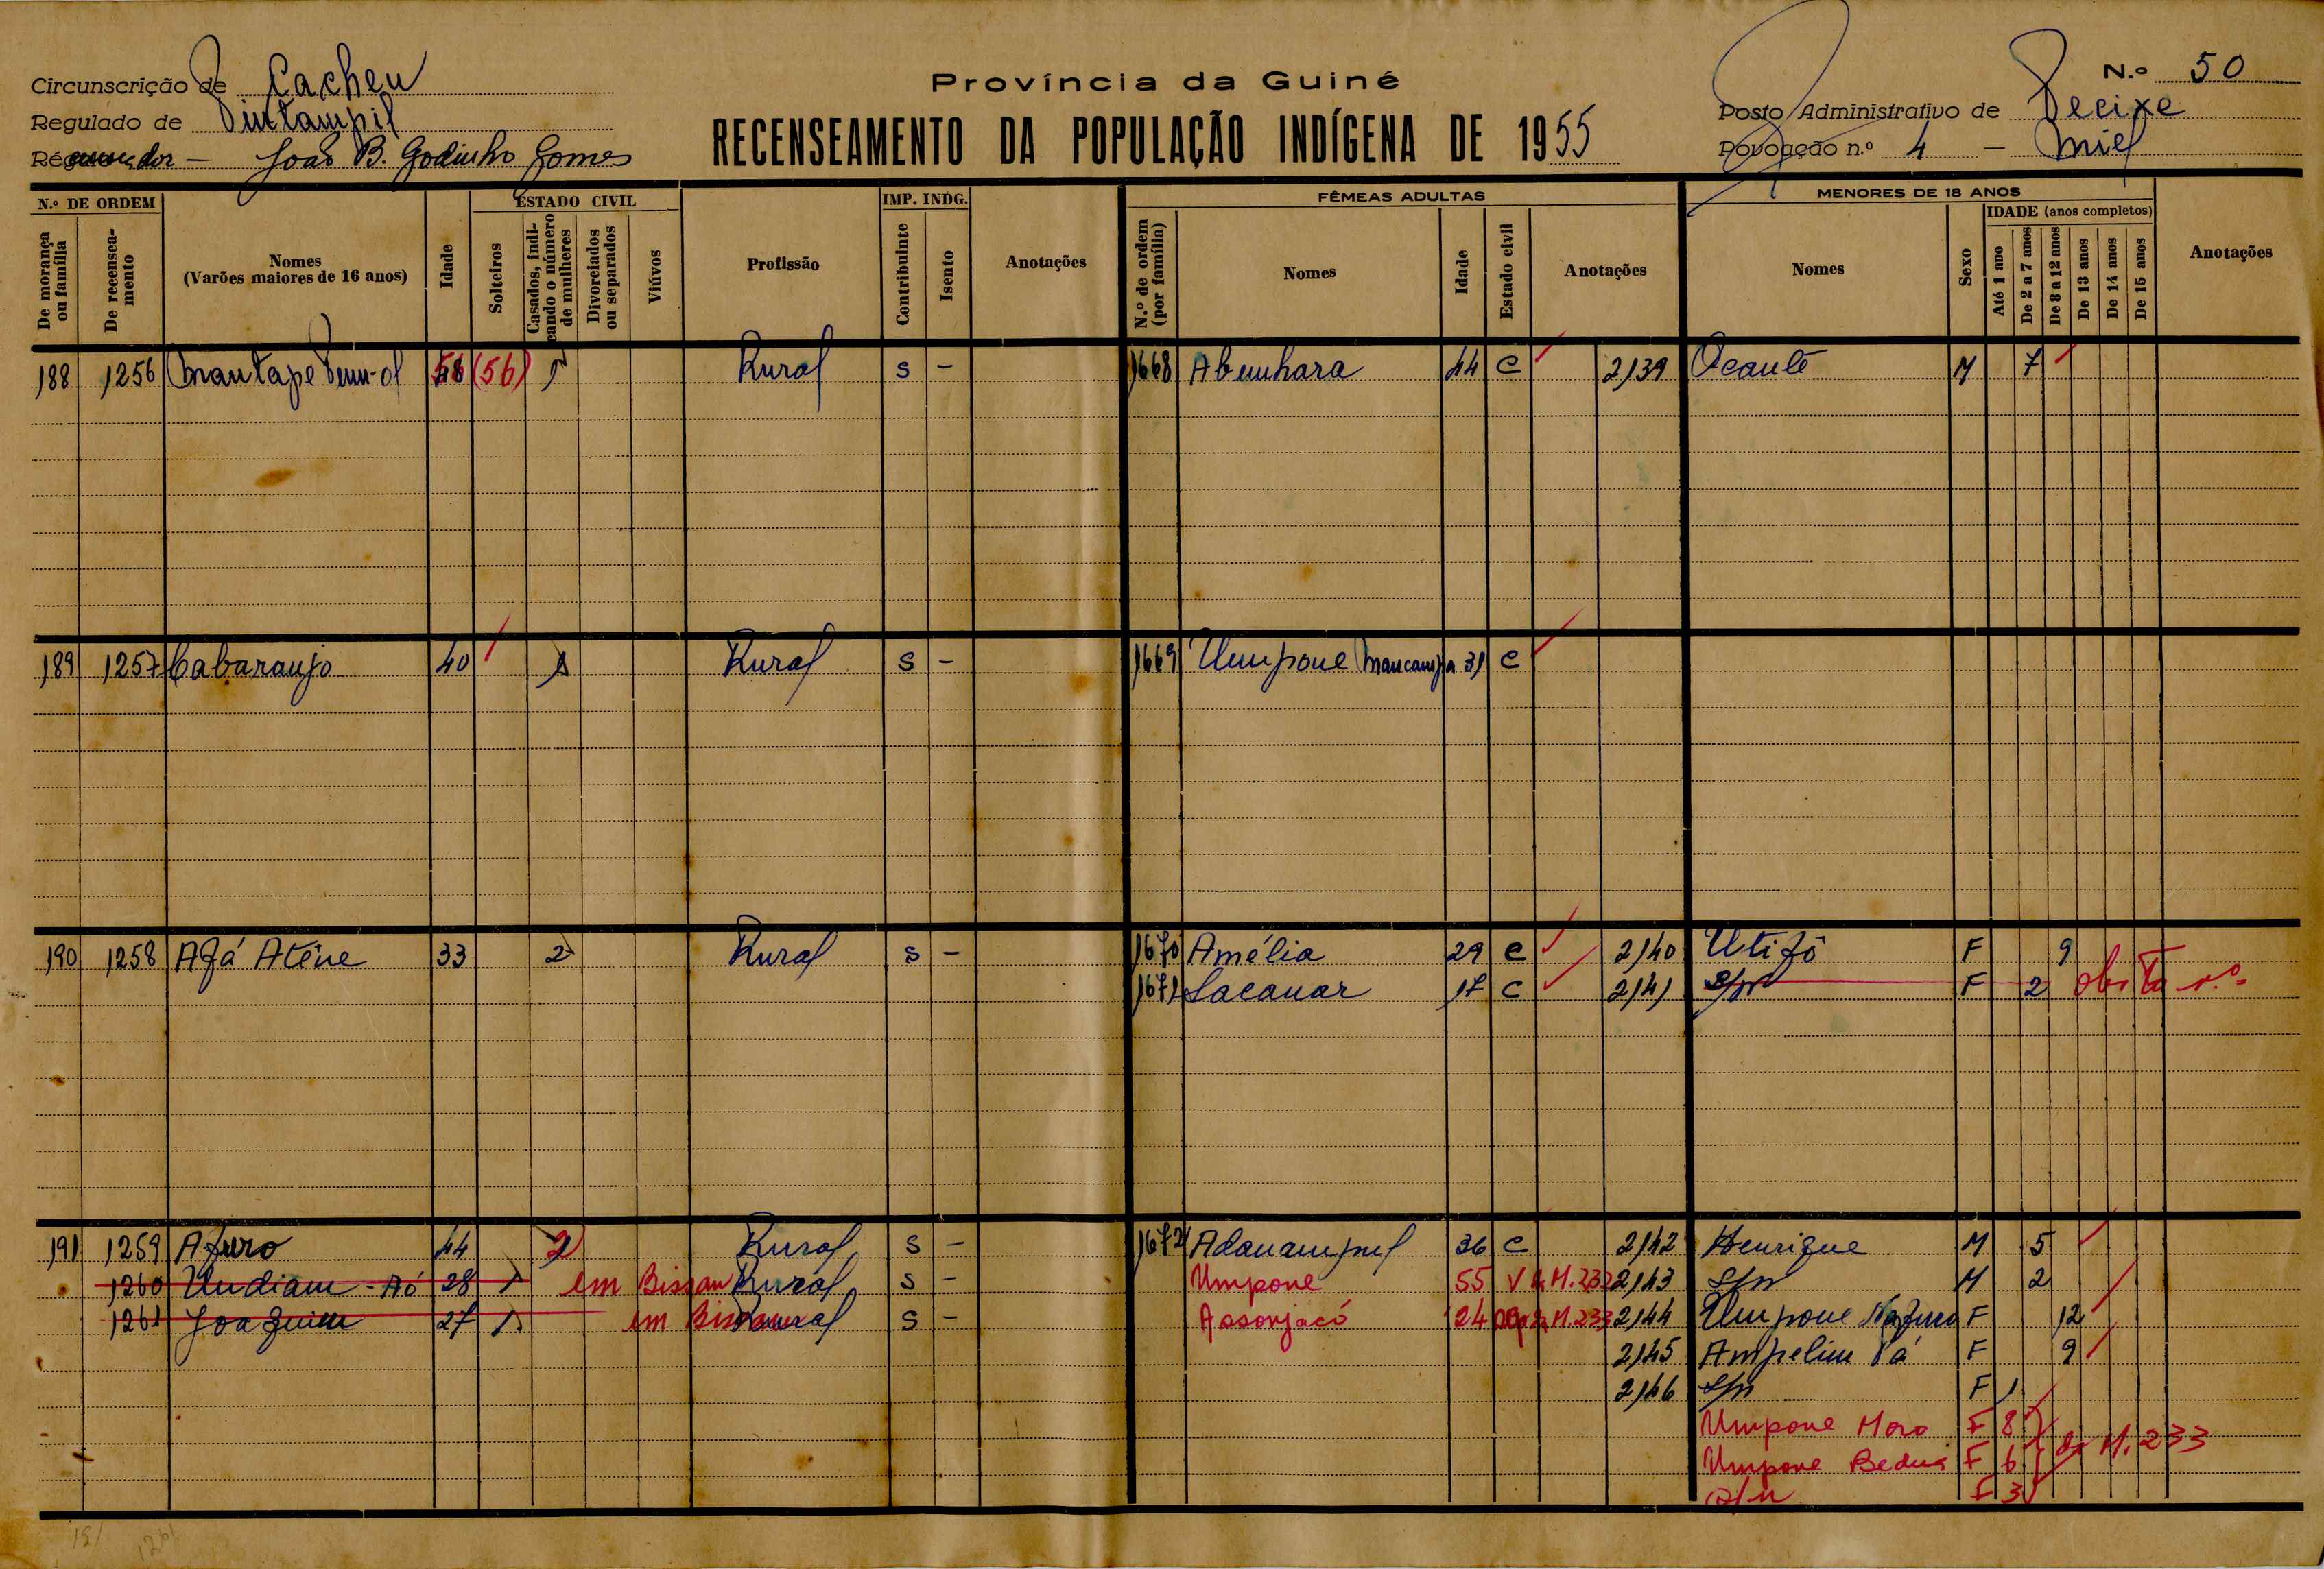 Província da Guiné
N.º 50
Circunscrição de Cacheu
Regulado de Pintampil
Recenseador - João B. Godinho Gomes
RECENSEAMENTO DA POPULAÇÃO INDÍGENA DE 1955
Posto Administrativo de Pecixe
Povoação n.º 4 - Miel
N.º DE ORDEM
De morança ou família
De recenseamento
Nomes
(Varões maiores de 16 anos)
Idade
ESTADO CIVIL
Solteiros
Casados, indicando o número de mulheres
Divorciados ou separados
Viúvos
Profissão
IMP. INDG.
Contribuinte
Isento
Anotações
FÊMEAS ADULTAS
N.º de ordem (por família)
Nomes
Idade
Estado civil
Anotações
MENORES DE 18 ANOS
Nomes
Sexo
IDADE (anos completos)
Até 1 ano
De 2 a 7 anos
De 8 a 12 anos
De 13 anos
De 14 anos
De 15 anos
Anotações
188 1256 (56) 1 Rural s - 1668 Abunhara 44 C 2139 Ocante M 7
189 1257 Cabaraujo 40 1 Rural s - 1669 Umpone Mancampa 31 C
190 1258 Afá Atène 33 2 Rural s - 1670 Amélia 29 C 2140 Utifô F 9
1671 Sacanar 17 C 2141 S/n F 2 obito n.º
191 1259 Afuro 44 2 Rural s - 1672 Adanampul 36 C 2142 Henrique M 5
1260 Undiam - Aó 28 1 em Bissau Rural s - Umpone 55 V M. 233 2143 S/n M 2
1261 Joaquim 27 1 em Bissau Rural s - Assonjacó 24 M. 233 2144 Umpone Nafuro F 12
2145 Ampelim Pá F 9
2146 S/n F 1
Umpone Moro F 8
Umpone Bedus F 6 da M. 233
S/n F 3
191 1261